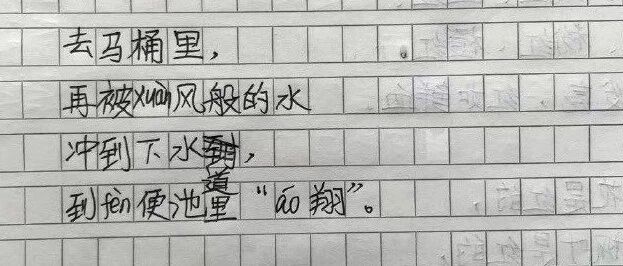 去马桶里，
再被xuàn风般的水
冲到下水道，
到fèn便池里“áo翔”。